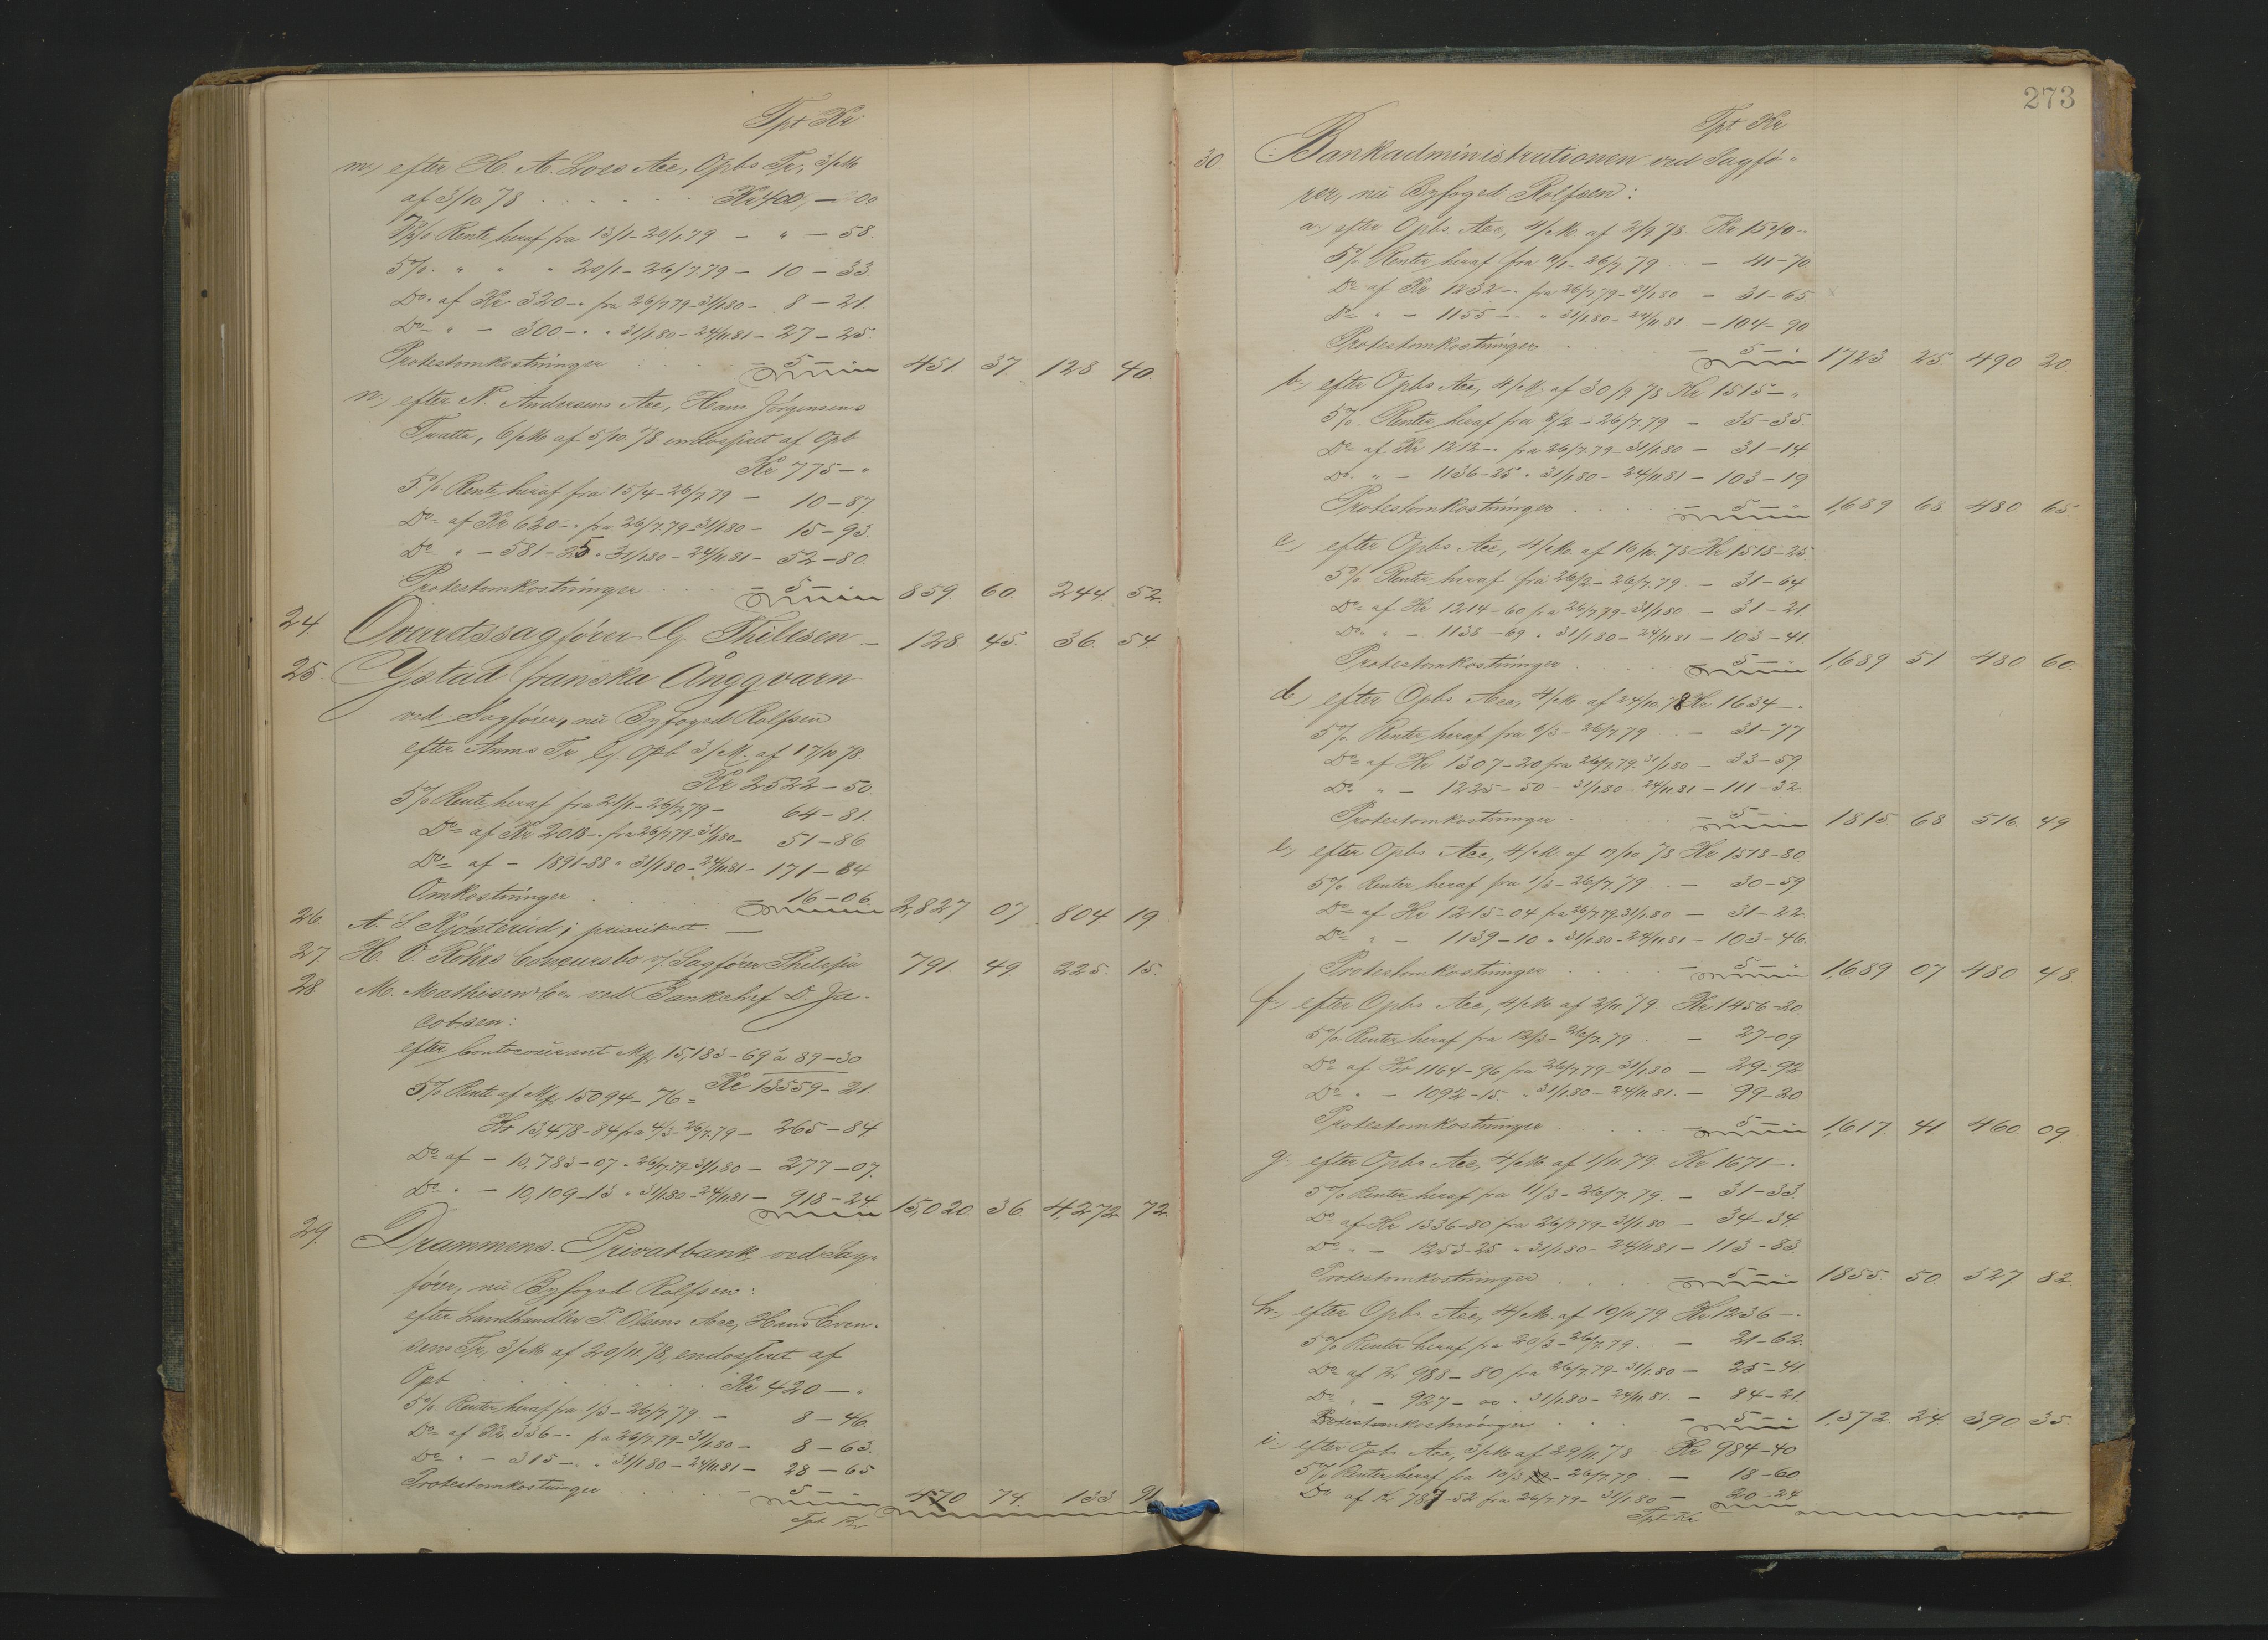 Tpt Kr
m, efter H. A. Loes Acc, Opbs Tr, 3/M
af 3/10 78 . . . . . . Kr 400, — 00
7% Rente heraf fra 13/1 - 20/1 79 — " — 58.
5% " " " 20/1 - 26/7 79 — 10 — 33.
Do af Kr 320 - " fra 26/7 79 - 31/1 80 — 8 — 21
Do " — 300 - " " 31/1 80 - 24/11 81 — 27 — 25.
Protestomkostninger . . . — 5 — " 451. 37. 128 40.
n, efter N. Andersens Acc, Hans Jörgensens
Tratta, 6/M af 5/10 78 endosseret af Opb
Kr 775 — "
5% Rente heraf fra 15/4 - 26/7 79 — 10 — 87.
Do af Kr 620 - " fra 26/7 79 - 31/1 80 — 15 — 93.
Do " — 581 - 25 " 31/1 80 - 24/11 81 — 52 — 80.
Protestomkostninger . . . — 5 — " 859. 60. 244. 52.
24. Overretssagfører G. Thilesen — 128. 45. 36. 54.
25. Ystad franska Ånggvarn
ved Sagfører, nu Byfoged Rolfsen
efter Anms Tr G. Opb 3/M af 17/10 78.
Kr 2522 — 50.
5% Rente heraf fra 21/1 - 26/7 79 — 64 — 81.
Do af Kr 2018 - " fra 26/7 79 - 31/1 80 — 51 — 86
Do af — 1891 - 88 " 31/1 80 - 24/11 81 — 171 — 84
Omkostninger . . . — 16 — 06. 2,827 07. 804 19
26. A. S. Kjösterud; prioriteret. —
27 H. O. Röhrs Concursbo v/ Sagfører Thilesen 791. 49. 225. 15.
28 M. Mathisen & Co ved Bankchef D. Ja-
cobsen:
efter Contocourant Mf 15,183 - 69 a 89 - 30
Kr 13559 - 21.
5% Rente af Mf 15094 - 76 =
Kr 13,478 - 84 fra 4/3 - 26/7 79 — 265 — 84.
Do af — 10,783 - 07 " 26/7 79 - 31/1 80 — 277 — 07.
Do " — 10,109 - 13 " 31/1 80 - 24/11 81 — 918 — 24. 15,020. 36. 4,272 72.
29. Drammens Privatbank ved Sag-
fører, nu Byfoged Rolfsen:
efter Landhandler P. Olsens Acc, Hans Even-
sens Tr, 3/M af 20/11 78, endosseret af
Opb . . . . . . Kr 420 — "
5% Renter heraf fra 1/3 - 26/7 79. — 8 — 46.
Do af Kr. 336 - " fra 26/7 79 - 31/1 80 — 8 — 63.
Do " — 315 - " " 31/1 80 - 24/11 81 — 28 — 65
Protestomkostninger . . . — 5 — " 470 74. 133. 91.
Tpt Kr
273
Tpt Kr
30. Bankadministrationen ved Sagfø-
rer, nu Byfoged Rolfsen:
a, efter Opbs Acc, 4/M af 2/9 78 Kr 1540 "
5% Renter heraf fra 11/1 - 26/7 79 — 41 - 70
Do af Kr 1232 - " fra 26/7 79 - 31/1 80 — 31 - 65
Do " — 1155 - " " 31/1 80 - 24/11 81 — 104 - 90
Protestomkostninger . . . — 5 — " 1723 25. 490 20.
b, efter Opbs Acc, 4/M af 30/9 78 Kr 1515 - "
5% Renter heraf fra 8/2 - 26/7 79 — 35 - 35.
Do af Kr 1212 - " fra 26/7 79 - 31/1 80 — 31 - 14
Do " — 1136 - 25 " 31/1 80 - 24/11 81 — 103 - 19
Protestomkostninger . . . — 5 — " 1,689 68 480 65.
c, efter Opbs Acc, 4/M af 16/10 78 Kr 1518 - 25
5% Renter heraf fra 26/2 - 26/7 79 — 31 - 64
Do af Kr 1214 - 60 fra 26/7 79 - 31/1 80 — 31 - 21
Do " — 1138 - 69 " 31/1 80 - 24/11 81 — 103 - 41
Protestomkostninger . . . — 5 — " 1,689 51 480 60.
d, efter Opbs Acc, 4/M af 24/10 78 Kr 1634 - "
5% Renter heraf fra 6/3 - 26/7 79 — 31 - 77
Do af Kr 1307 - 20 fra 26/7 79 - 31/1 80 — 33 - 59.
Do " — 1225 - 50 - 31/1 80 - 24/11 81 — 111 - 32
Protestomkostninger . . . — 5 — " 1815 68 516. 49
e, efter Opbs Acc, 4/M af 19/10 78 Kr 1518 - 80.
5% Renter heraf fra 1/3 - 26/7 79 . . — 30 - 59
Do af Kr 1215 - 04 fra 26/7 79 - 31/1 80 — 31 - 22
Do " — 1139 - 10 " 31/1 80 - 24/11 81 — 103 - 46.
Protestomkostninger . . . — 5 — " 1,689 07 480 48
f, efter Opbs Acc, 4/M af 2/11 79. Kr 1456 - 20.
5% Renter heraf fra 12/3 - 26/7 79. — 27 - 09
Do af Kr 1164 - 96 fra 26/7 79 - 31/1 80 — 29 - 92
Do " — 1092 - 15 " 31/1 80 - 24/11 81. — 99 - 20.
Protestomkostninger . . . — 5 — " 1,617. 41 460. 09
g. efter Opbs Acc, 4/M af 1/11 79. Kr 1671 - "
5% Renter heraf fra 11/3 - 26/7 79. — 31 - 33.
Do af Kr 1336 - 80 fra 26/7 79 - 31/1 80 — 34 - 34
Do " — 1253 - 25 " 31/1 80 - 24/11 81 — 113 - 83
Protestomkostninger . . . — 5 — " 1855. 50. 527 82.
h, efter Opbs Acc, 4/M af 10/11 79 Kr 1236 - "
5% Renter heraf fra 20/3 - 26/7 79. . — 21 - 62.
Do af Kr 988 - 80 fra 26/7 79 - 31/1 80 — 25 - 41.
Do " — 927 - 00 " 31/1 80 - 24/11 81. — 84 - 21.
Protestomkostninger . . . — 5 — " 1,372. 24 390 35
i, efter Opbs Acc, 3/M af 29/11 78 Kr 984 - 40
5% Renter heraf fra 10/3 - 26/7 79 — 18 - 60.
Do af Kr 787 - 52 fra 26/7 79 - 31/1 80 — 20 - 24
Tpt Kr